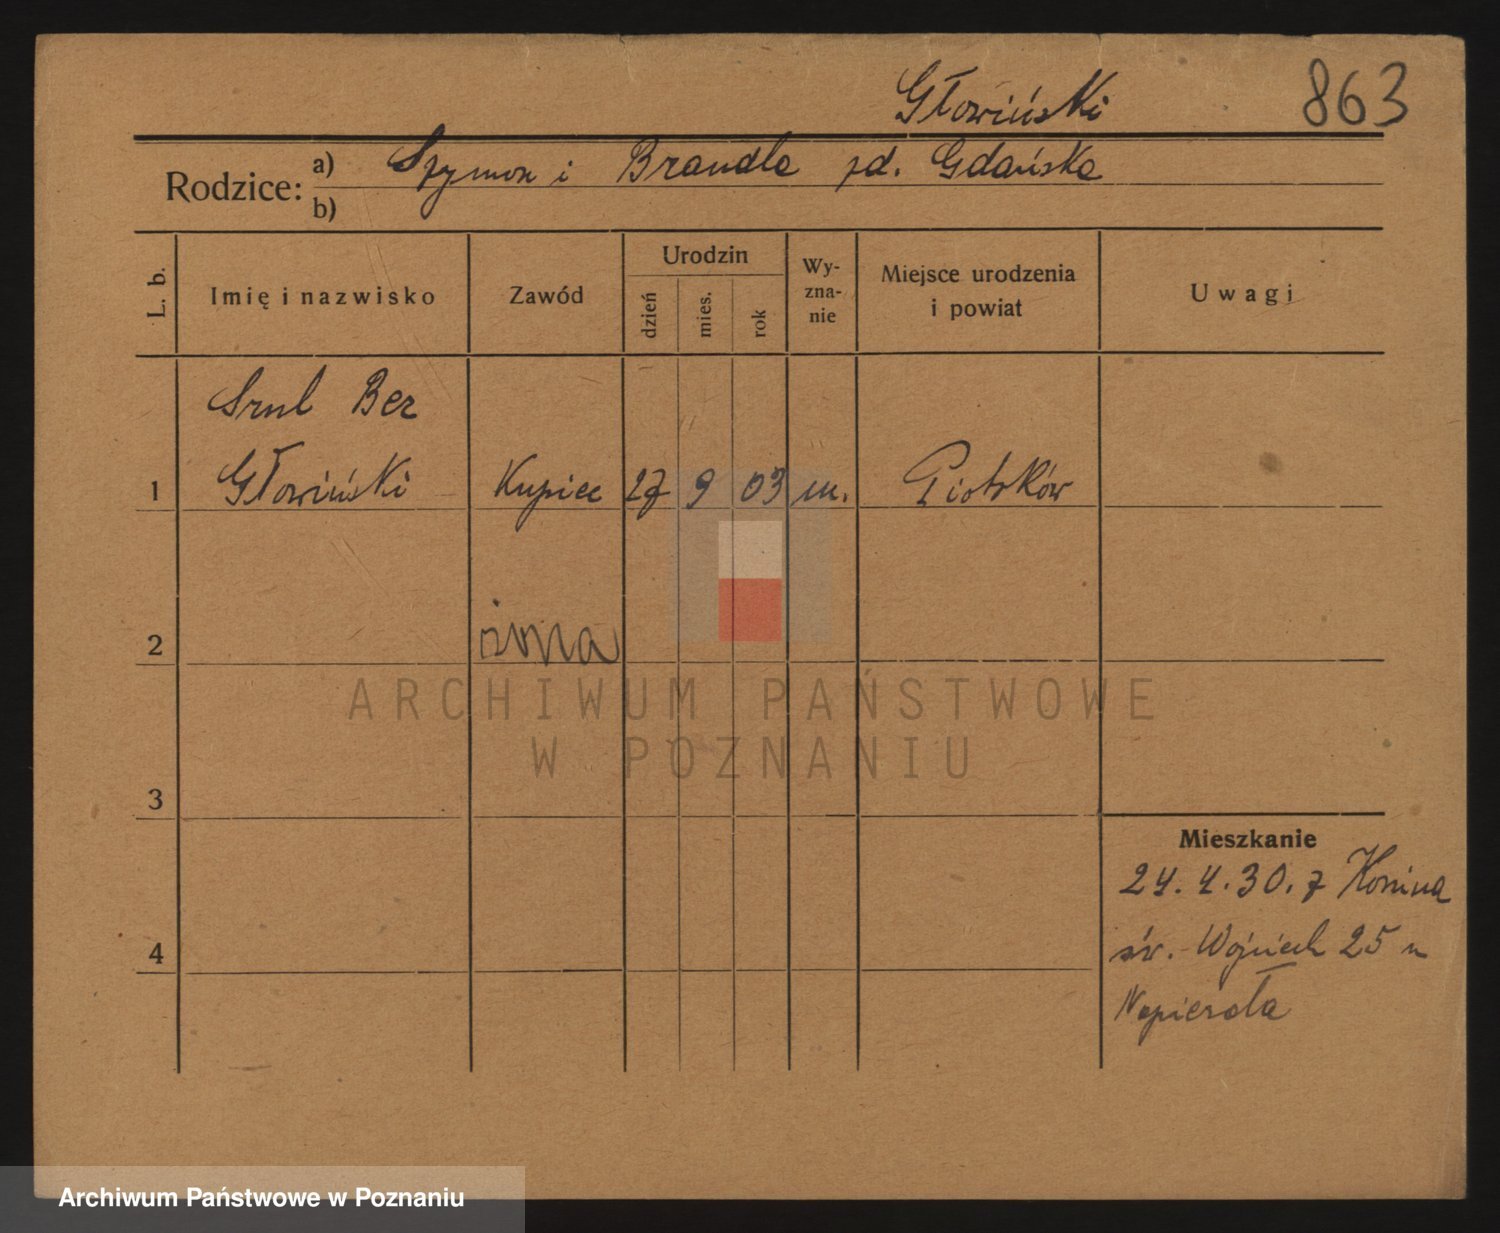 Głowiński 863
Rodzice: a) Szymon i Brandla zd. Gdańska
b)
L. b. Imię i nazwisko Zawód Urodzin dzień mies. rok Wyzna-nie Miejsce urodzenia i powiat Uwagi
Srul Ber
1 Głowiński Kupiec 27 9 03 m. Piotrków
2
3
Mieszkanie
24. 4. 30. z Konina
4 św. Wojciech 25 u
Napierała
ARCHIWUM PAŃSTWOWE
W POZNANIU
Archiwum Państwowe w Poznaniu